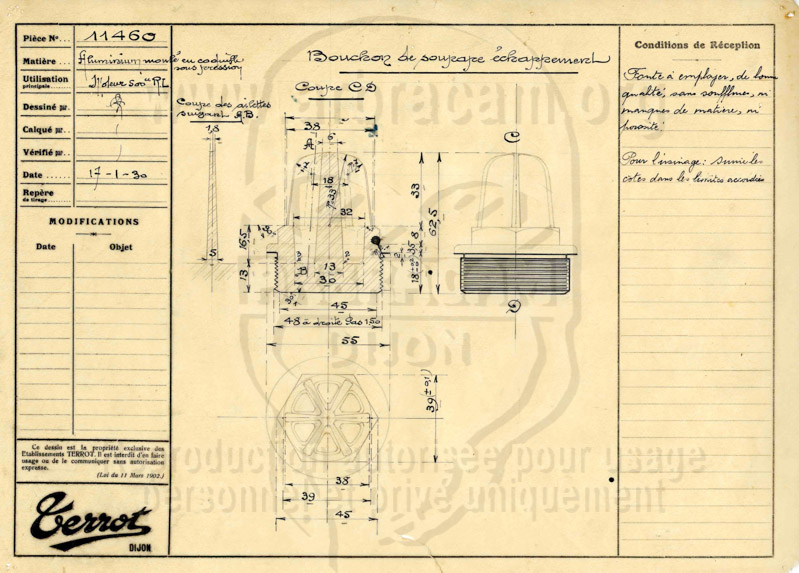 Pièce N°... 11460
Matière... Aluminium moulé en coquille
sous pression
Utilisation
principale... Moteur 500cc R.L
Dessiné par.
Calqué par...
Vérifié par..
Date ...... 17-1-30
Repère
de tirage......
MODIFICATIONS
Date Objet
Ce dessin est la propriété exclusive des
Etablissements TERROT. Il est interdit d'en faire
usage ou de le communiquer sans autorisation
expresse.
(Loi du 11 Mars 1902.)
Terrot
DIJON
Bouchon de soupape échappement
Coupe C.D
Coupe des ailettes
suivant A.B.
1,8
5
38
6
A
18
33
32
16,5
13
B
13
30
45
48 à droite Pas 150
55
33
8
35
62,5
2
C
D
39 (±0,1)
38
39
45
Conditions de Réception
Fonte à employer, de bonne
qualité, sans soufflures, ni
manques de matière, ni
porosité.
Pour l'usinage: suivre les
cotes dans les limites accordées
DIJON
production autorisée pour usage
personnel et privé uniquement